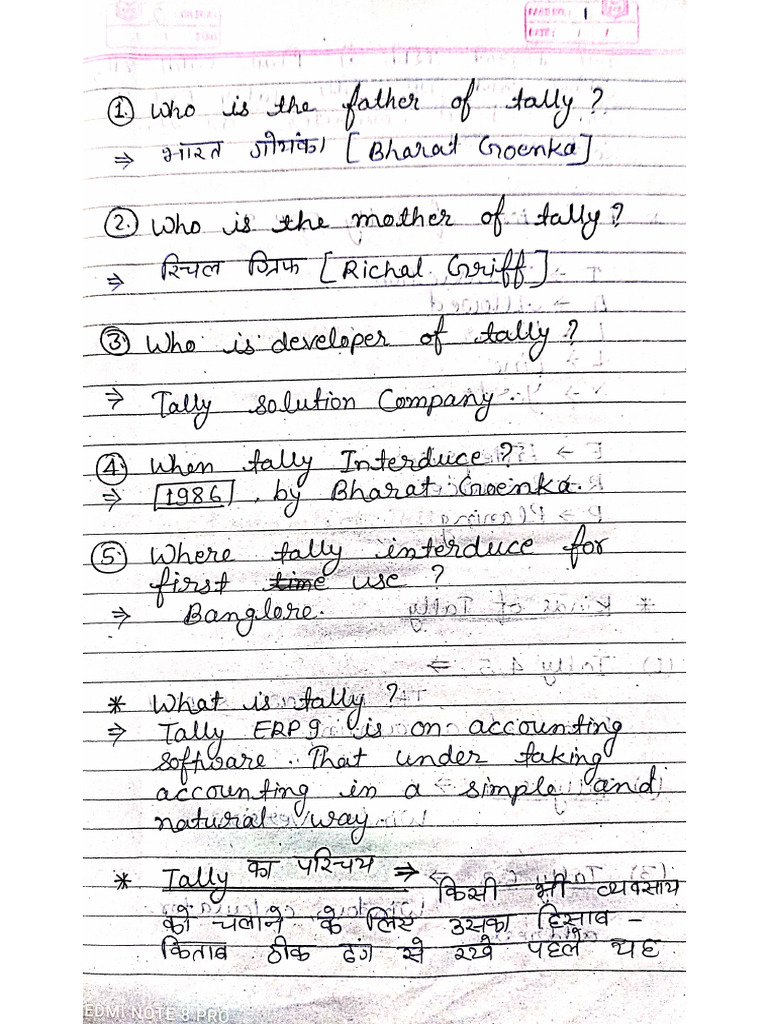 PAGE NO. 1
DATE: / /
1. Who is the father of tally ?
⇒ भारत गोयंका [Bharat Goenka]
2. Who is the mother of tally ?
⇒ रिचल ग्रिफ [Richal Griff]
3. Who is developer of tally ?
⇒ Tally solution Company.
4. When tally Interduce ?
⇒ 1986, by Bharat Goenka.
5. Where tally interduce for
first time use ?
⇒ Banglore.
* What is tally ?
⇒ Tally ERP 9 is on accounting
software. That under taking
accounting in a simple and
natural way.
* Tally का परिचय ⇒ किसी भी व्यवसाय
को चलाने के लिए उसका हिसाब -
किताब ठीक ढंग से रखे पहले यह
REDMI NOTE 8 PRO